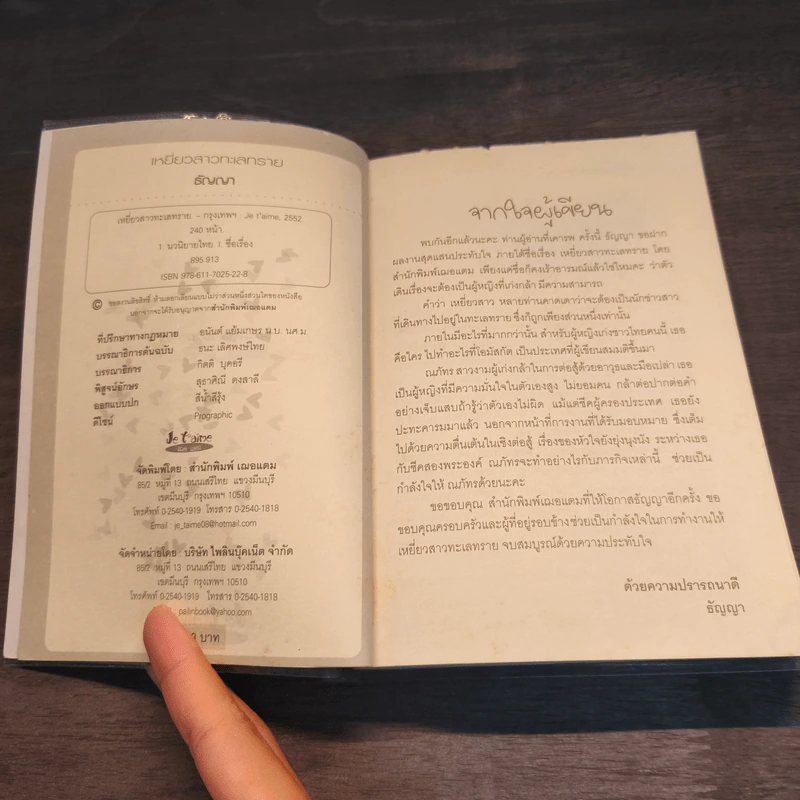 เหยี่ยวสาวทะเลทราย
ธัญญา
เหยี่ยวสาวทะเลทราย. - กรุงเทพฯ : Je t'aime, 2552.
240 หน้า
1. นวนิยายไทย I. ชื่อเรื่อง.
895.913
ISBN 978-611-7025-22-8
© ขอสงวนลิขสิทธิ์ ห้ามลอกเลียนแบบไม่ว่าส่วนหนึ่งส่วนใดของหนังสือ
นอกจากจะได้รับอนุญาตจากสำนักพิมพ์เฌอแตม
ที่ปรึกษาทางกฎหมาย อนันต์ แย้มเกษร น.บ. นศ.ม.
บรรณาธิการต้นฉบับ ธนะ เลิศพงษ์ไทย
บรรณาธิการ กิตติ บุคอรี
พิสูจน์อักษร สุธาศิณี ดงสาลี
ออกแบบปก สีน้ำสีรุ้ง
ดีไซน์ Prographic
Je t'aime
จัดพิมพ์โดย : สำนักพิมพ์ เฌอแตม
85/2 หมู่ที่ 13 ถนนเสรีไทย แขวงมีนบุรี
เขตมีนบุรี กรุงเทพฯ 10510
โทรศัพท์ 0-2540-1919 โทรสาร 0-2540-1818
Email : je_taime08@hotmail.com
จัดจำหน่ายโดย : บริษัท ไพลินบุ๊คเน็ต จำกัด
85/2 หมู่ที่ 13 ถนนเสรีไทย แขวงมีนบุรี
เขตมีนบุรี กรุงเทพฯ 10510
โทรศัพท์ 0-2540-1919 โทรสาร 0-2540-1818
pailinbook@yahoo.com
บาท
จากใจผู้เขียน
พบกันอีกแล้วนะคะ ท่านผู้อ่านที่เคารพ ครั้งนี้ ธัญญา ขอฝาก
ผลงานสุดแสนประทับใจ ภายใต้ชื่อเรื่อง เหยี่ยวสาวทะเลทราย โดย
สำนักพิมพ์เฌอแตม เพียงแค่ชื่อก็คงเร้าอารมณ์แล้วใช่ไหมคะ ว่าตัว
เดินเรื่องจะต้องเป็นผู้หญิงที่เก่งกล้า มีความสามารถ
คำว่า เหยี่ยวสาว หลายท่านคาดเดาว่าจะต้องเป็นนักข่าวสาว
ที่เดินทางไปอยู่ในทะเลทราย ซึ่งก็ถูกเพียงส่วนหนึ่งเท่านั้น
ภายในมีอะไรที่มากกว่านั้น สำหรับผู้หญิงเก่งชาวไทยคนนี้ เธอ
คือใคร ไปทำอะไรที่โอมัสกัต เป็นประเทศที่ผู้เขียนสมมติขึ้นมา
ณภัทร สาวงามผู้เก่งกล้าในการต่อสู้ด้วยอาวุธและมือเปล่า เธอ
เป็นผู้หญิงที่มีความมั่นใจในตัวเองสูง ไม่ยอมคน กล้าต่อปากต่อคำ
อย่างเจ็บแสบถ้ารู้ว่าตัวเองไม่ผิด แม้แต่ชีคผู้ครองประเทศ เธอยัง
ปะทะคารมมาแล้ว นอกจากหน้าที่การงานที่ได้รับมอบหมาย ซึ่งเต็ม
ไปด้วยความตื่นเต้นในเชิงต่อสู้ เรื่องของหัวใจยังยุ่งนุงนัง ระหว่างเธอ
กับชีคสองพระองค์ ณภัทรจะทำอย่างไรกับภารกิจเหล่านี้ ช่วยเป็น
กำลังใจให้ ณภัทรด้วยนะคะ
ขอขอบคุณ สำนักพิมพ์เฌอแตมที่ให้โอกาสธัญญาอีกครั้ง ขอ
ขอบคุณครอบครัวและผู้ที่อยู่รอบข้างช่วยเป็นกำลังใจในการทำงานให้
เหยี่ยวสาวทะเลทราย จบสมบูรณ์ด้วยความประทับใจ
ด้วยความปรารถนาดี
ธัญญา